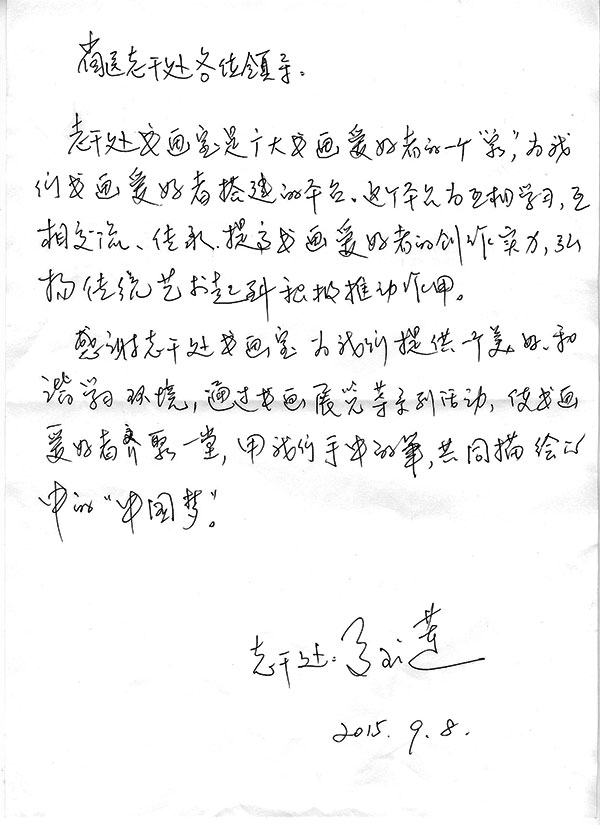 省医老干处各位领导:
老干处书画室是广大书画爱好者的一个"家",为我
们书画爱好者搭建的平台。这个平台为互相学习,互
相交流、传承、提高书画爱好者的创作实力,弘
扬传统艺术起到积极推动作用。
感谢老干处书画室为我们提供一个美好、和
谐学习环境,通过书画展览等系列活动,使书画
爱好者齐聚一堂,用我们手中的筆,共同描绘心
中的"中国梦"。
老干处:
2015.9.8.